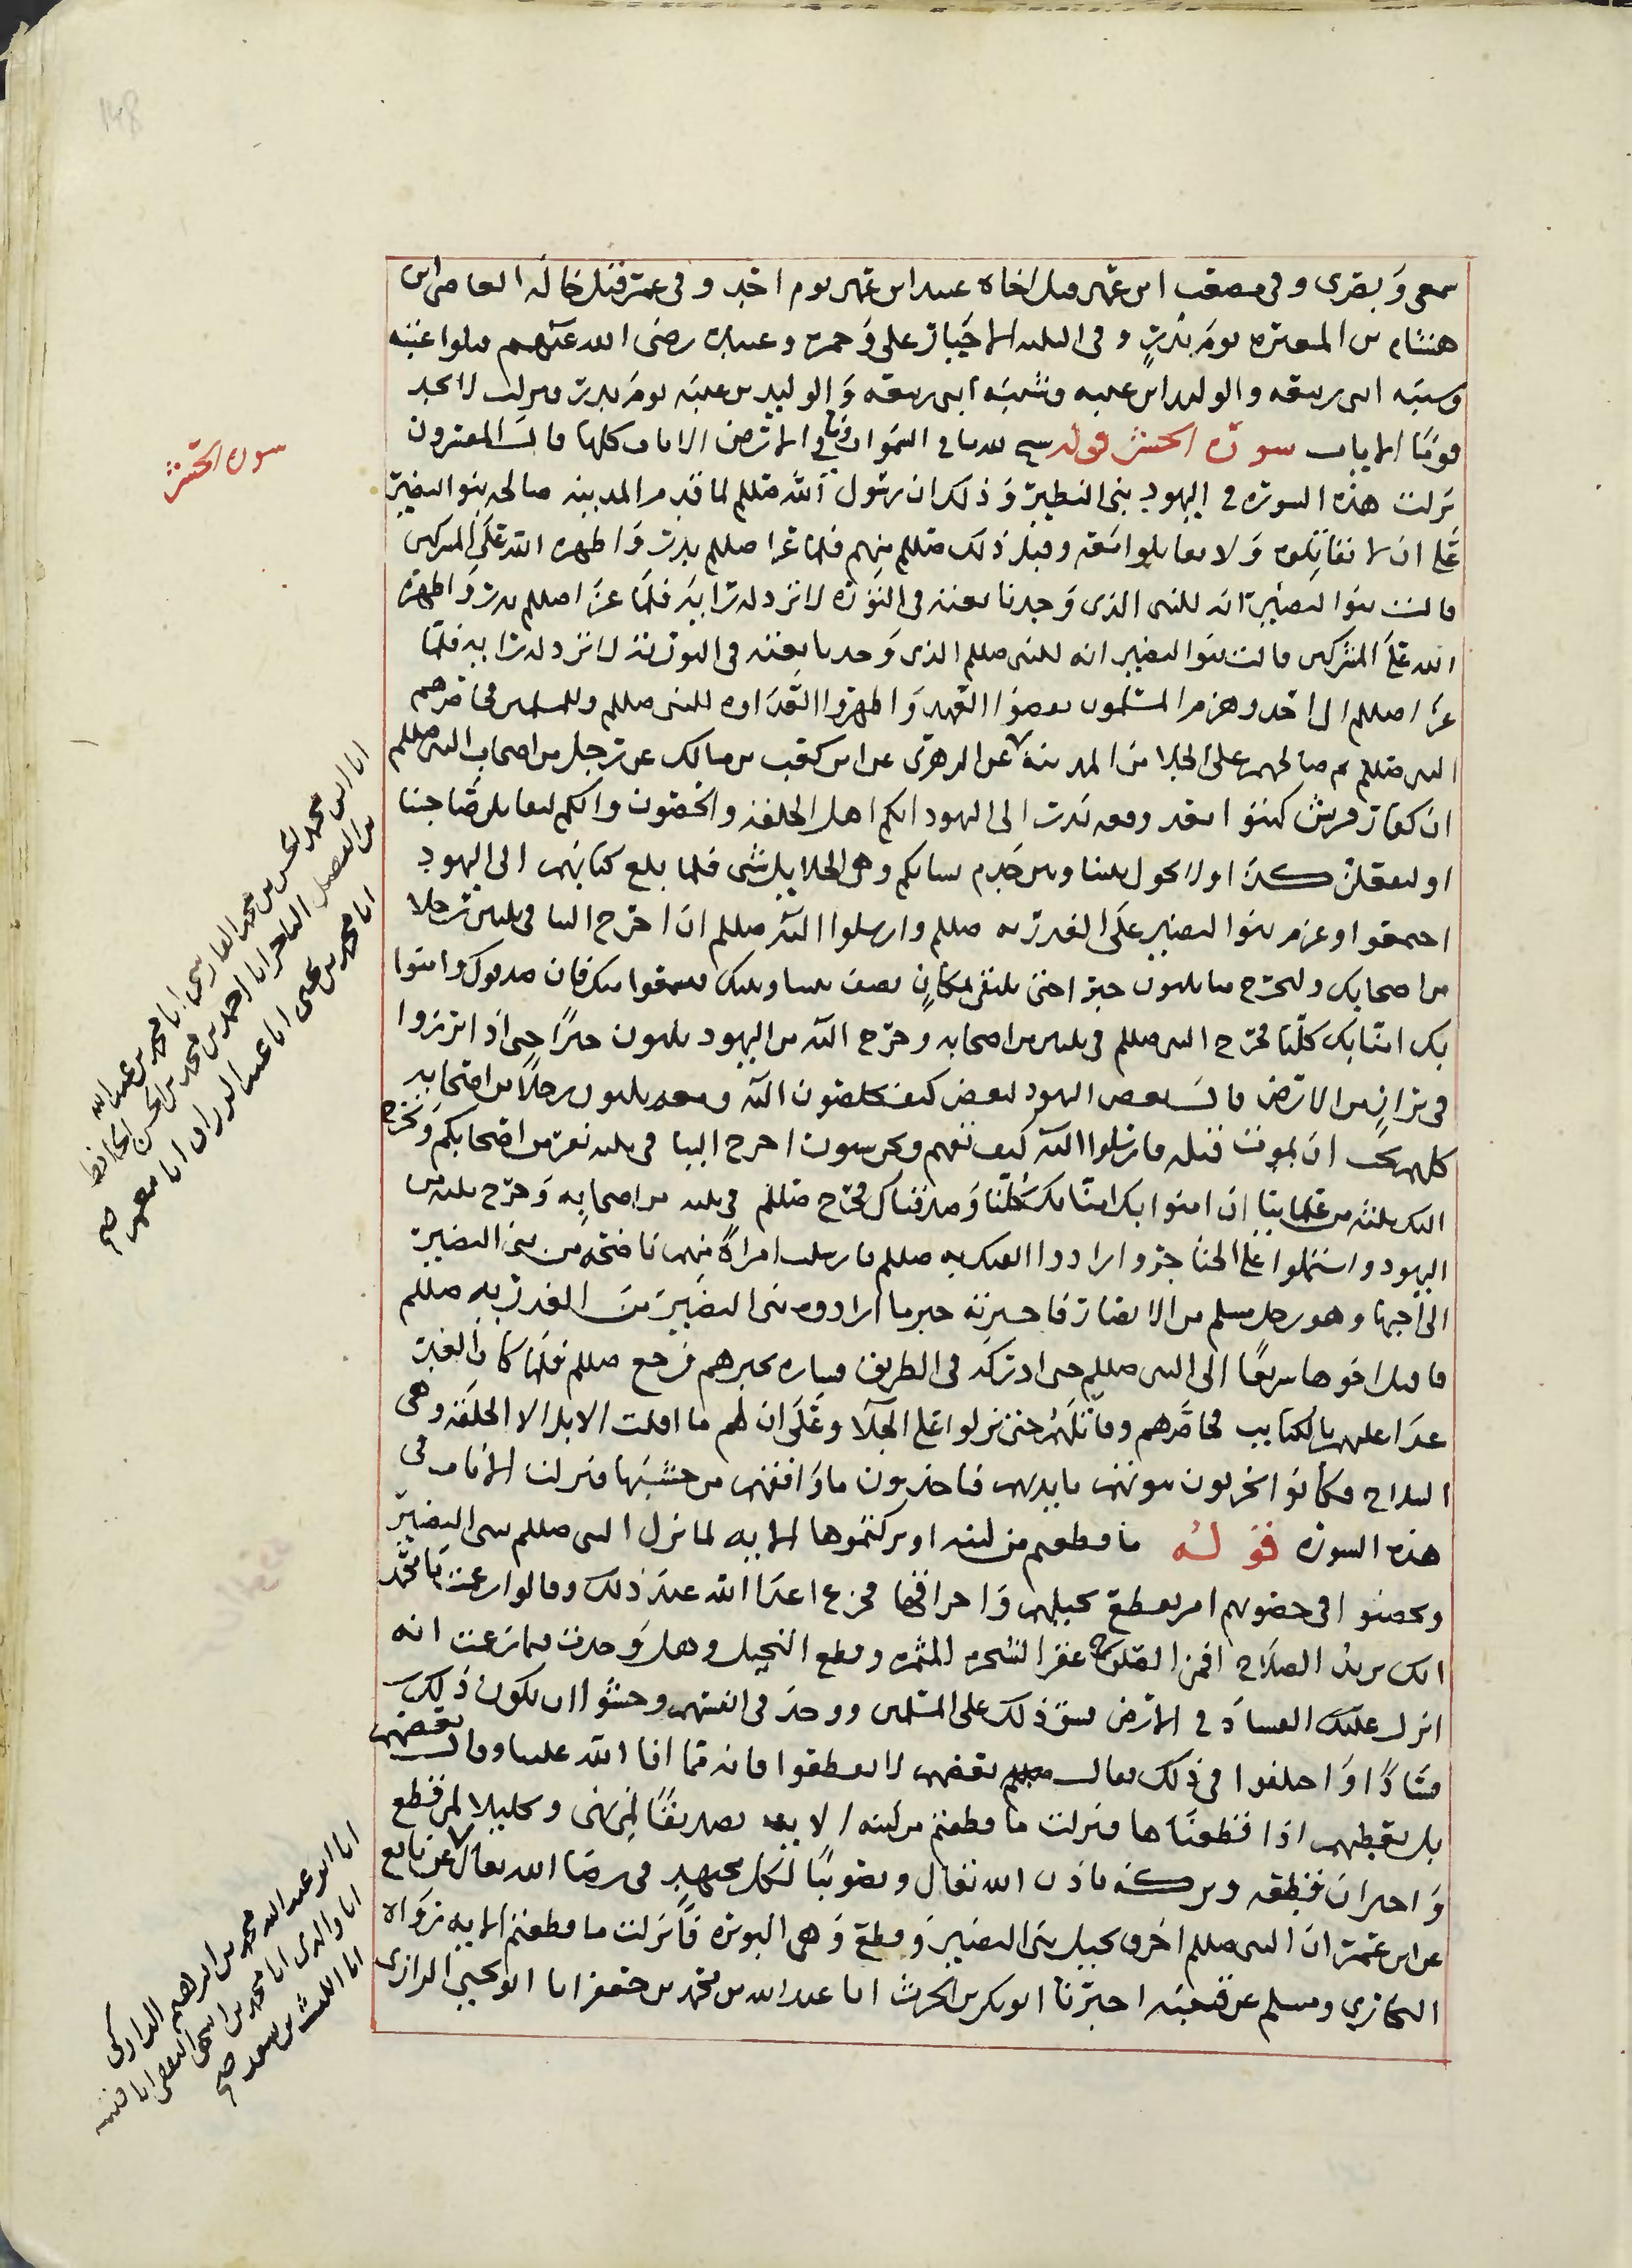 سمعى وبصرى وفى مصعب ابن عمير قتل اخاه عبيد ابن عمير يوم احد وفى عمر قتل خاله العاصى ابن
هشام بن المغيره يوم بدر وفى الثلثه الاخيار على وحمزه وعبيده رضى الله عنهم قتلوا عتبه
وشيبه ابنى ربيعه والوليد ابن عتبه وشيبه ابنى ربيعه والوليد بن عتبه يوم بدر ونزلت لا تجد
قوما الايات سورة الحشر قوله سبح لله ما فى السموات وما فى الارض الايات كلها قال المفسرون
نزلت هذه السوره فى اليهود بنى النظير وذلك ان رسول الله صللم لما قدم المدينه صالحه بنو النضير
على ان لا نقاتلوه ولا يقاتلوا معه وقبل ذلك صللم منهم فلما غزا صللم بدر واظهره الله على المشركين
قالت بنوا النضير انه للنبى الذى وجدنا نعته فى التورة لا ترد له راية فلما غزا صللم بدر واظهره
الله على المشركين قالت بنوا النضير انه للنبى صللم الذى وجدنا نعته فى التورية لا ترد له راية فلما
غزا صللم ال احد وهزم المسلمون نقضوا العهد واظهروا العداوه للنبى صللم وللمسلمين فحاصرهم
النبى صللم ثم صالحهم على الجلا من المدينة عن الزهرى عن ابن كعب بن مالك عن رجل من اصحاب النبى صللم
ان كفار قريش كتبوا بعد وقعه بدر الى اليهود انكم اهل الحلقه والحصون وانكم لتقاتلن صاحبنا
او لنفعلن كذا ولا يحول بيننا وبين خدم نسائكم وهى الخلاخيل شى فلما بلغ كتابهم الى اليهود
اجمعوا وعزم بنوا النضير على الغدر به صللم وارسلوا اليه صللم ان اخرج الينا فى ثلثين رجلا
من اصحابك وليخرج منا ثلثون حبرا حتى نلتقى بمكان نصف بيننا وبينك فيسمعوا منك فان صدقوك وامنوا
بك امنا بك كلنا فخرج النبى صللم فى ثلثين من اصحابه وخرج اليه من اليهود ثلثون حبرا حتى اذا برزوا
فى براز من الارض قال بعض اليهود لبعض كيف تخلصون اليه ومعه ثلثون رجلا من اصحابه
كلهم يحب ان يموت قبله فارسلوا اليه كيف نفهم ونحن ستون اخرج الينا فى ثلثه نفر من اصحابكم ونخرج
اليك ثلثه من علمائنا ان امنوا بك امنا بك كلنا وصدقناك فخرج صللم فى ثلثه من اصحابه وخرج ثلثه من
اليهود واشتملوا على الخناجر وارادوا الفتك به صللم فارسلت امراة منهم ناضحه من بنى النضير
الى اخيها وهو رجل مسلم من الانصار فاخبرته خبر ما ارادوه بنى النضير من الغدر به صللم
فاقبل اخوها سريعا الى النبى صللم حتى ادركه فى الطريق فساره بخبرهم فرجع صللم فلما كان الغد
غدا عليهم بالكتايب فحاصرهم وقاتلهم حتى نزلوا على الجلا وعلى ان لهم ما اقلت الابل الا الحلقه وهى
السلاح فكانوا يخربون بيوتهم بايديهم فياخذون ما وافقهم من خشبها فنزلت الايات فى
هذه السورة قوله ما قطعتم من لينه او تركتموها الايه لما نزل النبى صللم بنى النضير
وتحصنوا فى حصونهم امر بقطع نخيلهم واحراقها فجزع اعدا الله عند ذلك وقالوا زعمت يا محمد
انك تريد الصلاح افمن الصلاح عقر الشجره المثمره وقطع النخيل وهل وجدت فيما زعمت انه
انزل عليك الفساد فى الارض فشق ذلك على المسلمين ووجد فى انفسهم وخشوا ان يكون ذلك
فسادا واختلفوا فى ذلك فقال بعضهم لا تقطعوا فانه مما افا الله علينا وقال بعضهم
بل نغيظهم اذا قطعناها فنزلت ما قطعتم من لينه الايه تصديقا لمن نهى وتحليلا لمن قطع
واخبر ان قطعه وتركه باذن الله تعالى وتصويبا لكل مجتهد فى رضا الله تعالى عن نافع
عن ابن عمر ان النبى صللم احرق نخيل بنى النضير وقطع وهى البويره فانزلت ما قطعتم الايه رواه
البخارى ومسلم عن قتيبه اخبرنا ابو بكر بن الحرث انا عبد الله بن محمد بن جعفر انا ابو يحيى الرازى
سورة الحشر
انا ابن محمد الحسن بن محمد الفارسى انا محمد بن عبد الله
بن الفضل التاجر انا احمد بن محمد بن الحسن الحافظ
انا محمد بن يحيى انا عبد الرزاق انا معمر صح
انا ابو عبد الله محمد بن ابراهيم المزكى
انا والدى انا محمد بن اسحق الثقفى انا قتيبه
انا الليث بن سعد صح